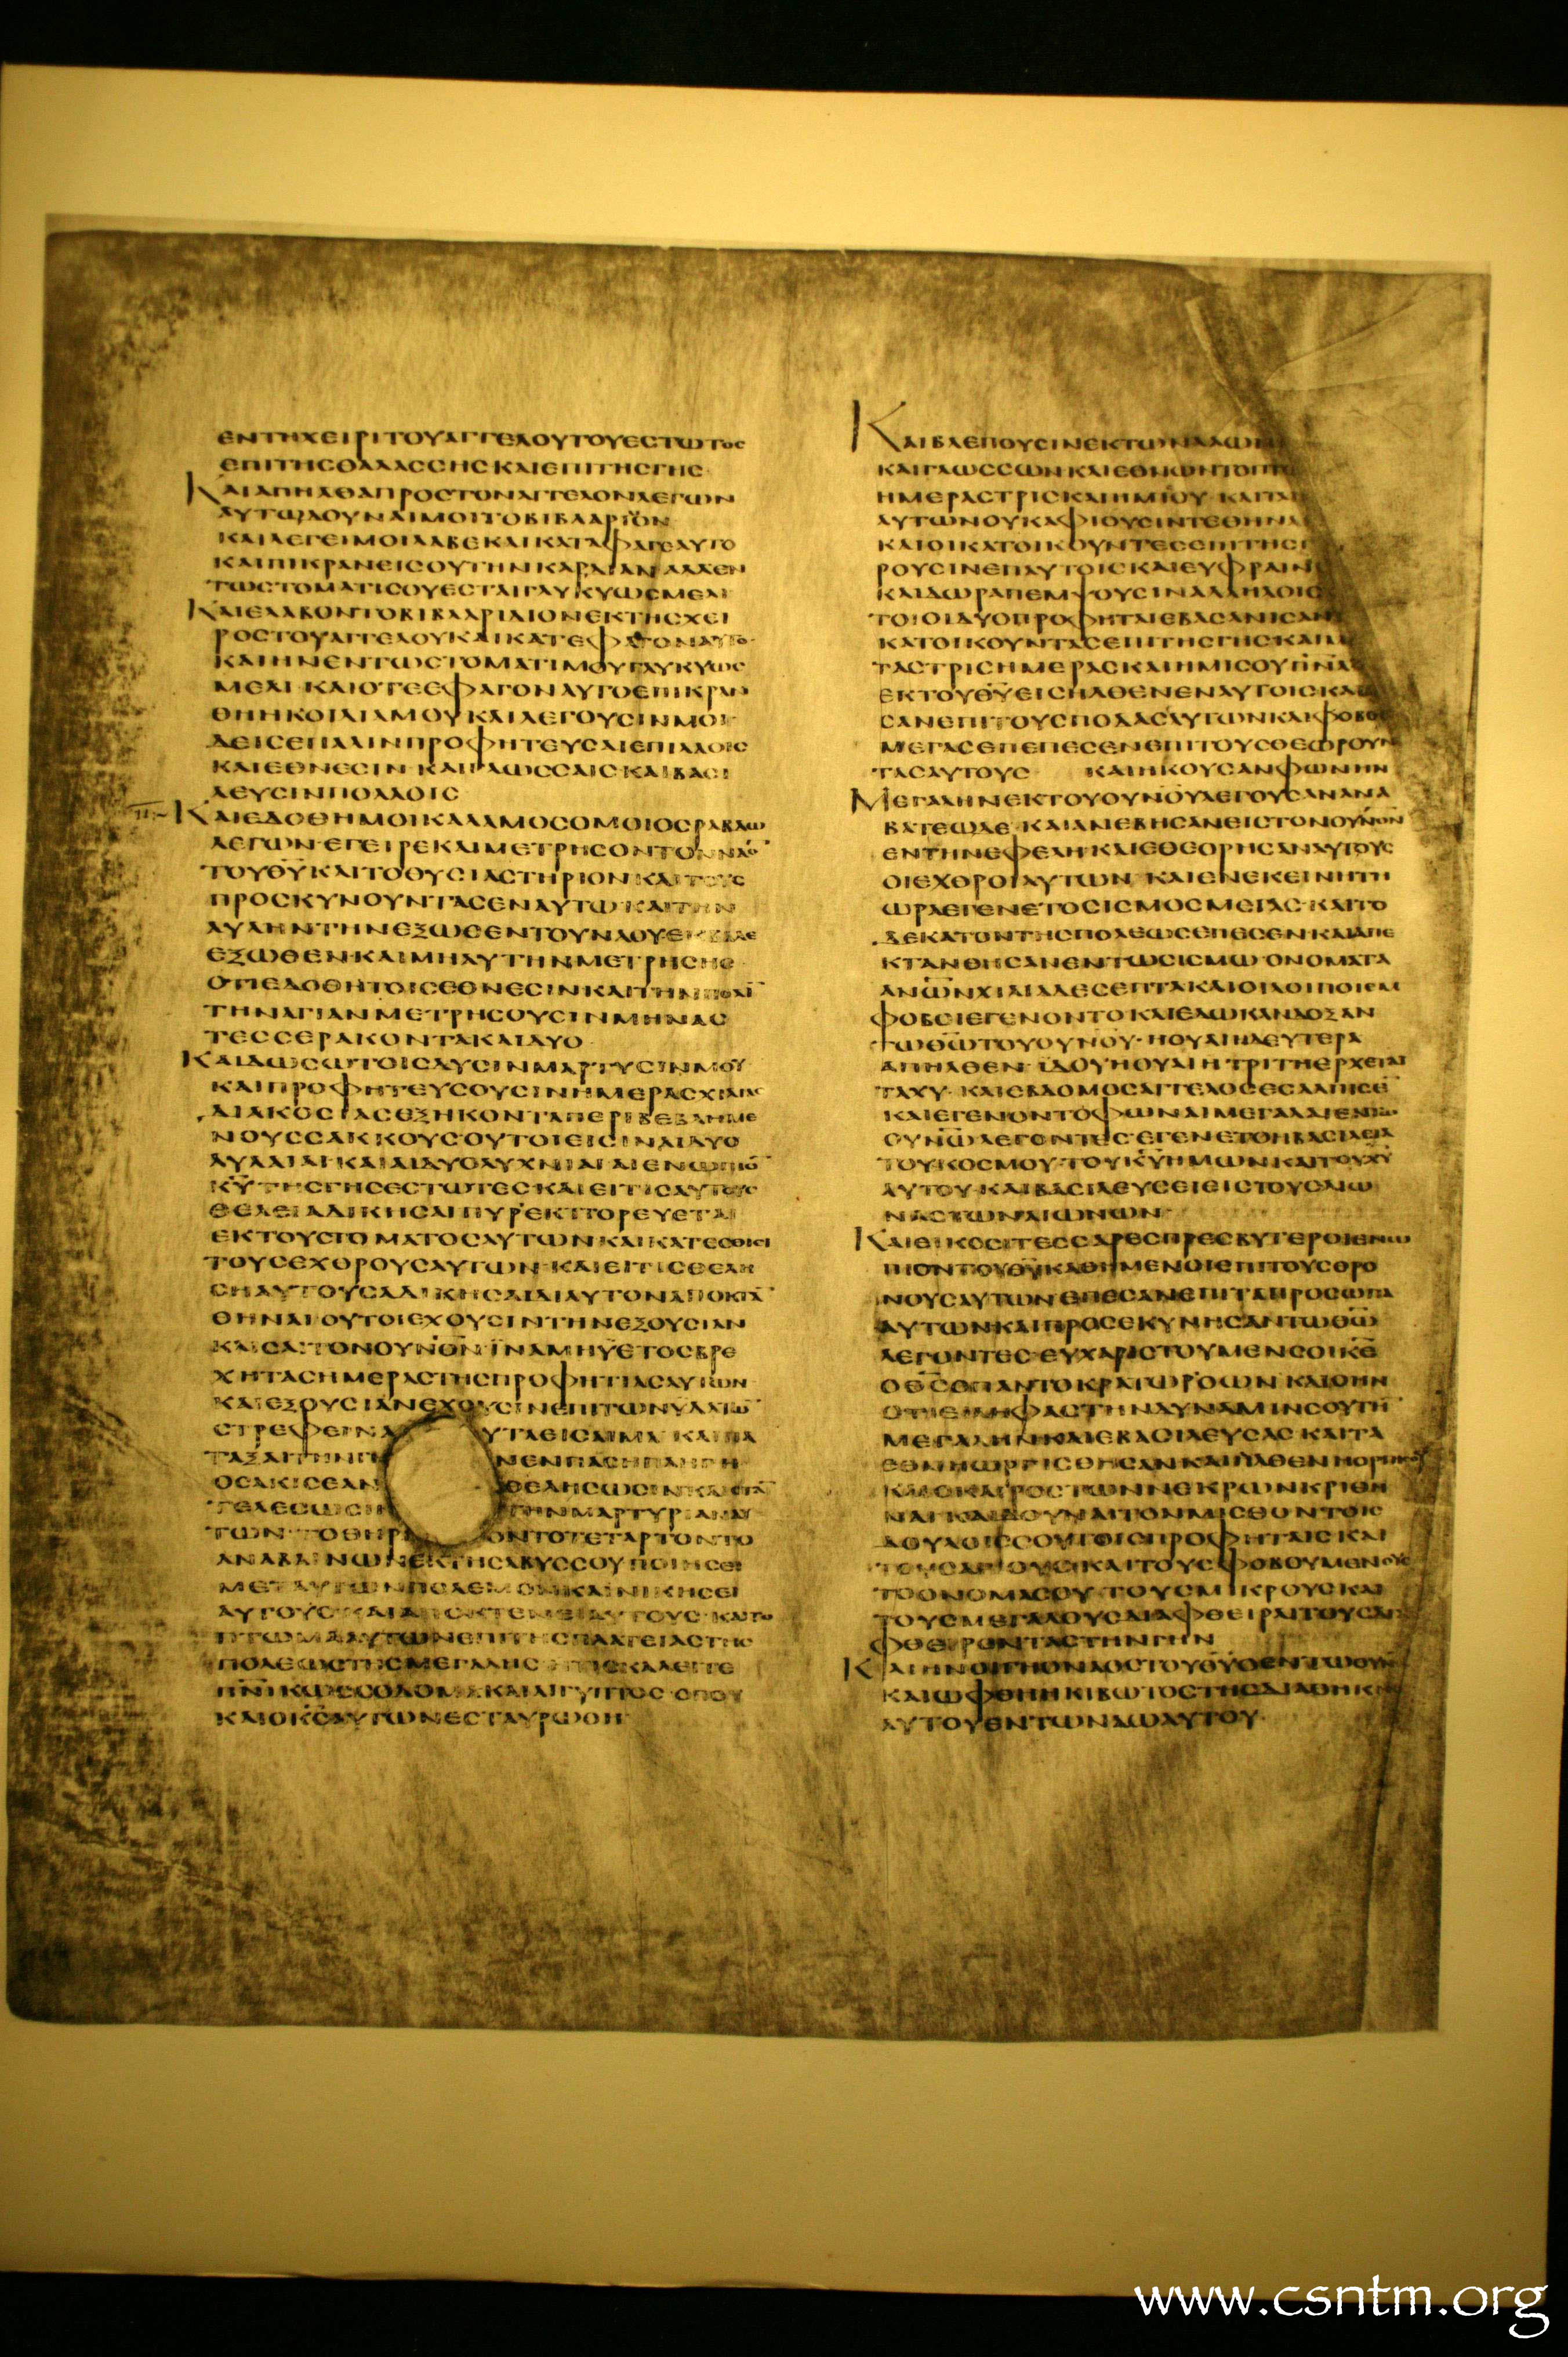 ΕΝΤΗΧΕΙΡΙΤΟΥΑΓΓΕΛΟΥΤΟΥΕCΤΩΤΟC
ΕΠΙΤΗCΘΑΛΑCCΗCΚΑΙΕΠΙΤΗCΓΗC
ΚΑΙΑΠΗΛΘΑΠΡΟCΤΟΝΑΓΓΕΛΟΝΛΕΓΩΝ
ΑΥΤΩΔΟΥΝΑΙΜΟΙΤΟΒΙΒΛΑΡΙΟΝ
ΚΑΙΛΕΓΕΙΜΟΙΛΑΒΕΚΑΙΚΑΤΑΦΑΓΕΑΥΤΟ
ΚΑΙΠΙΚΡΑΝΕΙCΟΥΤΗΝΚΑΡΔΙΑΝΑΛΛΕΝ
ΤΩCΤΟΜΑΤΙCΟΥΕCΤΑΙΓΛΥΚΥΩCΜΕΛΙ
ΚΑΙΕΛΑΒΟΝΤΟΒΙΒΛΑΡΙΔΙΟΝΕΚΤΗCΧΕΙ
ΡΟCΤΟΥΑΓΓΕΛΟΥΚΑΙΚΑΤΕΦΑΓΟΝΑΥΤΟ
ΚΑΙΗΝΕΝΤΩCΤΟΜΑΤΙΜΟΥΓΛΥΚΥΩC
ΜΕΛΙ ΚΑΙΟΤΕΕΦΑΓΟΝΑΥΤΟΕΠΙΚΡΑΝ
ΘΗΗΚΟΙΛΙΑΜΟΥΚΑΙΛΕΓΟΥCΙΝΜΟΙ
ΔΕΙCΕΠΑΛΙΝΠΡΟΦΗΤΕΥCΑΙΕΠΙΛΑΟΙC
ΚΑΙΕΘΝΕCΙΝ ΚΑΙΓΛΩCCΑΙCΚΑΙΒΑCΙ
ΛΕΥCΙΝΠΟΛΛΟΙC
ΚΑΙΕΔΟΘΗΜΟΙΚΑΛΑΜΟCΟΜΟΙΟCΡΑΒΔΩ
ΛΕΓΩΝ·ΕΓΕΙΡΕΚΑΙΜΕΤΡΗCΟΝΤΟΝΝΑΟ̄
ΤΟΥΘ̄Ῡ·ΚΑΙΤΟΘΥCΙΑCΤΗΡΙΟΝ·ΚΑΙΤΟΥC
ΠΡΟCΚΥΝΟΥΝΤΑCΕΝΑΥΤΩ·ΚΑΙΤΗΝ
ΑΥΛΗΝΤΗΝΕΞΩCΕΝΤΟΥΝΑΟΥΕΚΒΑΛΕ
ΕΞΩΘΕΝΚΑΙΜΗΑΥΤΗΝΜΕΤΡΗCΗC
ΟΤΙΕΔΟΘΗΤΟΙCΕΘΝΕCΙΝΚΑΙΤΗΝΠΟΛῙ
ΤΗΝΑΓΙΑΝΜΕΤΡΗCΟΥCΙΝΜΗΝΑC
ΤΕCCΕΡΑΚΟΝΤΑΚΑΙΔΥΟ
ΚΑΙΔΩCΩΤΟΙCΔΥCΙΝΜΑΡΤΥCΙΝΜΟΥ
ΚΑΙΠΡΟΦΗΤΕΥCΟΥCΙΝΗΜΕΡΑCΧΙΛΙΑC
ΔΙΑΚΟCΙΑCΕΞΗΚΟΝΤΑΠΕΡΙΒΕΒΛΗΜΕ
ΝΟΥCCΑΚΚΟΥCΟΥΤΟΙΕΙCΙΝΑΙΔΥΟ
ΑΥΛΑΙΑΙ·ΚΑΙΑΙΔΥΟΛΥΧΝΙΑΙΑΙΕΝΩΠΙΟ̄
Κ̄Ῡ·ΤΗCΓΗCΕCΤΩΤΕCΚΑΙΕΙΤΙCΑΥΤΟΥC
ΘΕΛΕΙΑΔΙΚΗCΑΙΠΥΡΕΚΠΟΡΕΥΕΤΑΙ
ΕΚΤΟΥCΤΟΜΑΤΟCΑΥΤΩΝΚΑΙΚΑΤΕCΘΙΕΙ
ΤΟΥCΕΧΘΡΟΥCΑΥΤΩΝ·ΚΑΙΕΙΤΙCΘΕΛΗ
CΗΑΥΤΟΥCΑΔΙΚΗCΑΙΔΙΑΥΤΟΝΑΠΟΚΤᾹ
ΘΗΝΑΙ ΟΥΤΟΙΕΧΟΥCΙΝΤΗΝΕΞΟΥCΙΑΝ
ΚΛΕΙCΑΙΤΟΝΟΥΝΟΝ·ΙΝΑΜΗΥΕΤΟCΒΡΕ
ΧΗΤΑCΗΜΕΡΑCΤΗCΠΡΟΦΗΤΙΑCΑΥΤΩΝ
ΚΑΙΕΞΟΥCΙΑΝΕΧΟΥCΙΝΕΠΙΤΩΝΥΔΑΤΩ̄
CΤΡΕΦΕΙΝΑΥΤΑΕΙCΑΙΜΑ ΚΑΙΠΑ
ΤΑΞΑΙΤΗΝΓΗΝΕΝΠΑCΗΠΛΗΓΗ
ΟCΑΚΙCΕΑΝΘΕΛΗCΩCΙΝ·ΚΑΙΟΤᾹ
ΤΕΛΕCΩCΙΝΤΗΝΜΑΡΤΥΡΙΑΝΑΥ
ΤΩΝ ΤΟΘΗΡΙΟΝΤΟΤΕΤΑΡΤΟΝΤΟ
ΑΝΑΒΑΙΝΩΝΕΚΤΗCΑΒΥCCΟΥΠΟΙΗCΕΙ
ΜΕΤΑΥΤΩΝΠΟΛΕΜΟΝΚΑΙΝΙΚΗCΕΙ
ΑΥΤΟΥC·ΚΑΙΑΠΟΚΤΕΝΕΙΑΥΤΟΥC·ΚΑΙΤΟ
ΠΤΩΜΑΑΥΤΩΝΕΠΙΤΗCΠΛΑΤΕΙΑCΤΗC
ΠΟΛΕΩCΤΗCΜΕΓΑΛΗC ΗΤΙCΚΑΛΕΙΤΕ
Π̄Ν̄ΙΚΩCCΟΔΟΜΑΚΑΙΑΙΓΥΠΤΟC·ΟΠΟΥ
ΚΑΙΟΚ̄C̄ΑΥΤΩΝΕCΤΑΥΡΩΘΗ
ΚΑΙΒΛΕΠΟΥCΙΝΕΚΤΩΝΛΑΩΝ
ΚΑΙΓΛΩCCΩΝΚΑΙΕΘΝΩΝΤΟΠΤ
ΗΜΕΡΑCΤΡΙCΚΑΙΗΜΙCΥ·ΚΑΙΤΑ
ΑΥΤΩΝΟΥΚΑΦΙΟΥCΙΝΤΕΘΗΝΑ
ΚΑΙΟΙΚΑΤΟΙΚΟΥΝΤΕCΕΠΙΤΗCΓ
ΡΟΥCΙΝΕΠΑΥΤΟΙCΚΑΙΕΥΦΡΑΙΝ
ΚΑΙΔΩΡΑΠΕΜΨΟΥCΙΝΑΛΛΗΛΟΙC
ΤΟΙΟΙΔΥΟΠΡΟΦΗΤΑΙΕΒΑCΑΝΙCΑΝ
ΚΑΤΟΙΚΟΥΝΤΑCΕΠΙΤΗCΓΗCΚΑΙΜ
ΤΑCΤΡΙCΗΜΕΡΑCΚΑΙΗΜΙCΟΥΠ̄Ν̄Α
ΕΚΤΟΥΘ̄Ῡ·ΕΙCΗΛΘΕΝΕΝΑΥΤΟΙCΚΑΙ
CΑΝΕΠΙΤΟΥCΠΟΔΑCΑΥΤΩΝΚΑΙΦΟΒΟC
ΜΕΓΑCΕΠΕΠΕCΕΝΕΠΙΤΟΥCΘΕΩΡΟΥΝ
ΤΑCΑΥΤΟΥC ΚΑΙΗΚΟΥCΑΝΦΩΝΗΝ
ΜΕΓΑΛΗΝΕΚΤΟΥΟΥΝΟΥΛΕΓΟΥCΑΝΑΝΑ
ΒΑΤΕΩΔΕ·ΚΑΙΑΝΕΒΗCΑΝΕΙCΤΟΝΟΥΝΟΝ
ΕΝΤΗΝΕΦΕΛΗ·ΚΑΙΕΘΕΟΡΗCΑΝΑΥΤΟΥC
ΟΙΕΧΘΡΟΙΑΥΤΩΝ ΚΑΙΕΝΕΚΕΙΝΗΤΗ
ΩΡΑΕΓΕΝΕΤΟCΙCΜΟCΜΕΓΑC·ΚΑΙΤΟ
ΔΕΚΑΤΟΝΤΗCΠΟΛΕΩCΕΠΕCΕΝΚΑΙΑΠΕ
ΚΤΑΝΘΗCΑΝΕΝΤΩCΙCΜΩ·ΟΝΟΜΑΤΑ
ΑΝ̄Ω̄ΝΧΙΛΙΑΔΕCΕΠΤΑΚΑΙΟΙΛΟΙΠΟΙΕΝ
ΦΟΒΩΕΓΕΝΟΝΤΟΚΑΙΕΔΩΚΑΝΔΟΞΑΝ
ΤΩΘ̄Ω̄ΤΟΥΟΥΝΟΥ·ΗΟΥΑΙΗΔΕΥΤΕΡΑ
ΑΠΗΛΘΕΝ·ΙΔΟΥΗΟΥΑΙΗΤΡΙΤΗΕΡΧΕΤΑΙ
ΤΑΧΥ·ΚΑΙΕΒΔΟΜΟCΑΓΓΕΛΟCΕCΑΛΠΙCΕ̄
ΚΑΙΕΓΕΝΟΝΤΟΦΩΝΑΙΜΕΓΑΛΑΙΕΝΤΩ
ΟΥΝΩΛΕΓΟΝΤΕC·ΕΓΕΝΕΤΟΗΒΑCΙΛΕΙΑ
ΤΟΥΚΟCΜΟΥ·ΤΟΥΚ̄Ῡ·ΗΜΩΝΚΑΙΤΟΥΧ̄Ῡ
ΑΥΤΟΥ·ΚΑΙΒΑCΙΛΕΥCΕΙΕΙCΤΟΥCΑΙΩ
ΝΑCΤΩΝΑΙΩΝΩΝ
ΚΑΙΕΙΚΟCΙΤΕCCΑΡΕCΠΡΕCΒΥΤΕΡΟΙΕΝΩ
ΠΙΟΝΤΟΥΘ̄Ῡ·ΚΑΘΗΜΕΝΟΙΕΠΙΤΟΥCΘΡΟ
ΝΟΥCΑΥΤΩΝΕΠΕCΑΝΕΠΙΤΑΠΡΟCΩΠΑ
ΑΥΤΩΝΚΑΙΠΡΟCΕΚΥΝΗCΑΝΤΩΘ̄Ω̄
ΛΕΓΟΝΤΕC·ΕΥΧΑΡΙCΤΟΥΜΕΝCΟΙΚ̄Ε̄
ΟΘ̄C̄ΟΠΑΝΤΟΚΡΑΤΩΡΟΩΝ·ΚΑΙΟΗΝ
ΟΤΙΕΙΛΗΦΑCΤΗΝΔΥΝΑΜΙΝCΟΥΤΗ̄
ΜΕΓΑΛΗΝΚΑΙΕΒΑCΙΛΕΥCΑC·ΚΑΙΤΑ
ΕΘΝΗΩΡΓΙCΘΗCΑΝΚΑΙΗΛΘΕΝΗΟΡΓΗ
ΚΑΙΟΚΑΙΡΟCΤΩΝΝΕΚΡΩΝΚΡΙΘΗ
ΝΑΙΚΑΙΔΟΥΝΑΙΤΟΝΜΙCΘΟΝΤΟΙC
ΔΟΥΛΟΙCCΟΥΤΟΙCΠΡΟΦΗΤΑΙCΚΑΙ
ΤΟΥCΑΓΙΟΥCΚΑΙΤΟΥCΦΟΒΟΥΜΕΝΟΥC
ΤΟΟΝΟΜΑCΟΥ·ΤΟΥCΜΙΚΡΟΥCΚΑΙ
ΤΟΥCΜΕΓΑΛΟΥCΔΙΑΦΘΕΙΡΑΙΤΟΥCΔΙΑ
ΦΘΕΙΡΟΝΤΑCΤΗΝΓΗΝ
ΚΑΙΗΝΟΙΓΗΟΝΑΟCΤΟΥΘ̄Ῡ·ΟΕΝΤΩΟΥΝ
ΚΑΙΩΦΘΗΗΚΙΒΩΤΟCΤΗCΔΙΑΘΗΚΗC
ΑΥΤΟΥΕΝΤΩΝΑΩΑΥΤΟΥ
www.csntm.org